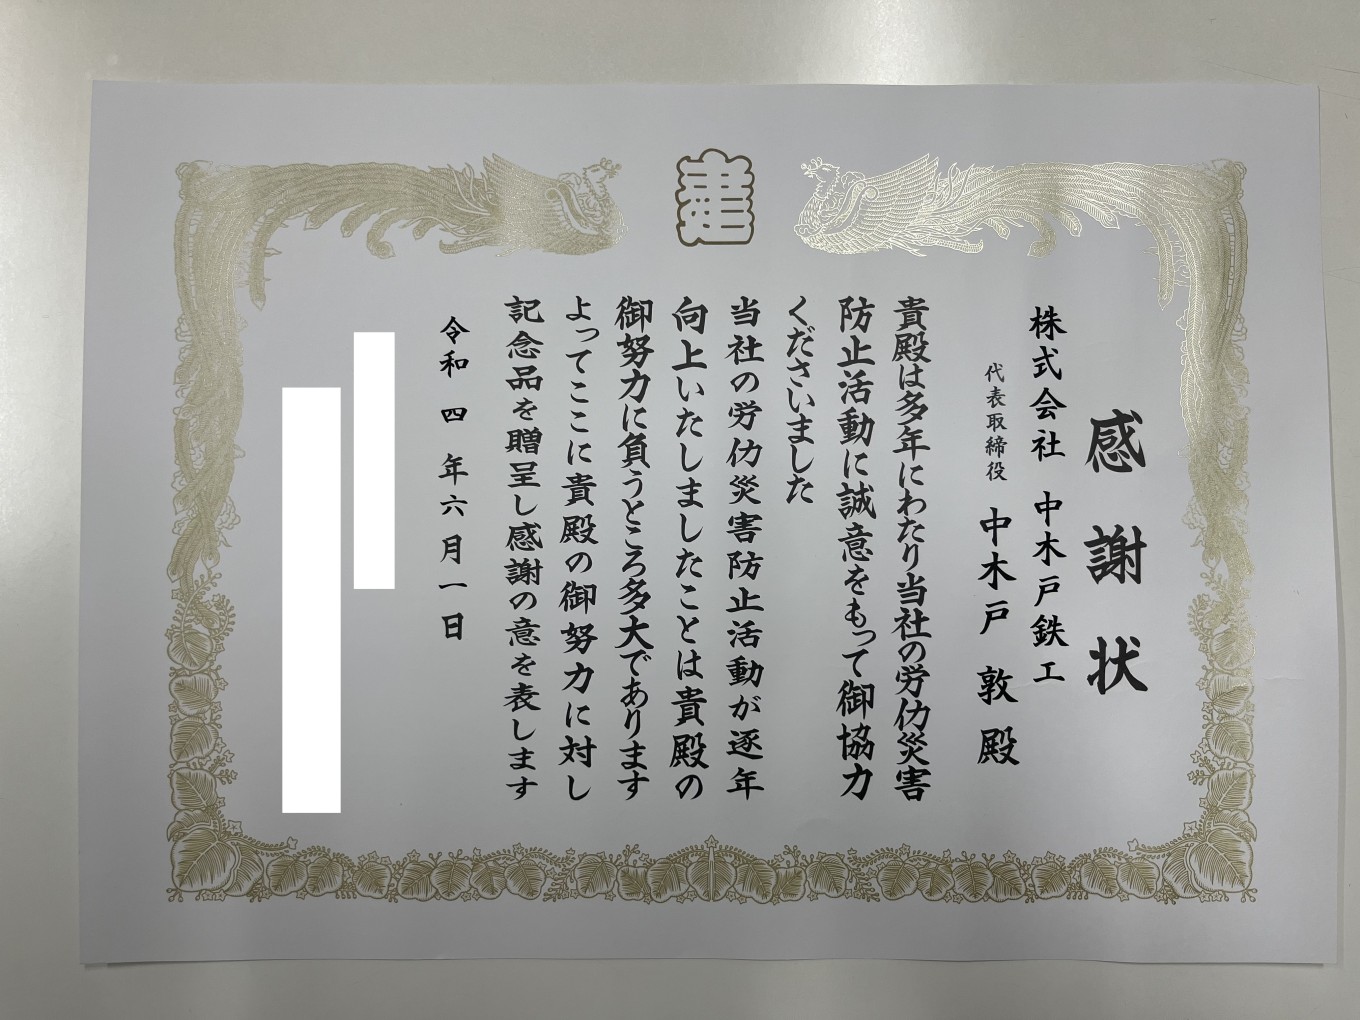 建
感謝状
株式会社 中木戸鉄工
代表取締役 中木戸 敦 殿
貴殿は多年にわたり当社の労仂災害
防止活動に誠意をもって御協力
くださいました
当社の労仂災害防止活動が逐年
向上いたしましたことは貴殿の
御努力に負うところ多大であります
よってここに貴殿の御努力に対し
記念品を贈呈し感謝の意を表します
令和四年六月一日